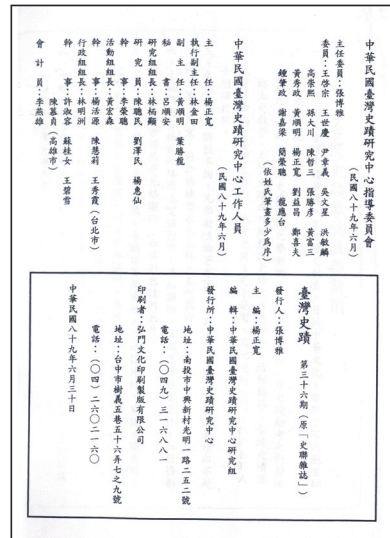 中華民國臺灣史蹟研究中心指導委員會
(民國八十九年六月)
主任委員：張博雅
委員：王啓宗　王世慶　尹章義　吳文星　洪敏麟
高崇熙　孫大川　陳哲三　張勝彥　黃富三
黃秀政　黃順明　楊正寬　劉益昌　鄭喜夫
鍾肇政　謝嘉梁　簡榮聰　龍應台
(依姓氏筆畫多少為序)
中華民國臺灣史蹟研究中心工作人員
(民國八十九年六月)
主任：楊正寬
執行副主任：林金田
副主任：黃順明　葉勝龍
秘書：呂順安
研究組組長：林栢顯
研究員：陳聰民　劉澤民　楊惠仙
幹事：李榮聰
活動組組長：黃宏森
幹事：楊活源　陳慧莉　王秀霞(台北市)
行政組組長：林明洲
幹事：許淑容　蘇桂女　王碧雪
陳慕貞(高雄市)
會計員：李燕雄
臺灣史蹟　第三十六期(原「史聯雜誌」)
發行人：張博雅
主編：楊正寬
編輯：中華民國臺灣史蹟研究中心研究組
發行所：中華民國臺灣史蹟研究中心
地址：南投市中興新村光明一路二五二號
電話：(〇四九)三一六八八一
印刷者：弘門文化印刷製版有限公司
地址：台中市樹義五巷五十六弄七之九號
電話：(〇四)二六〇二一六〇
中華民國八十九年六月三十日